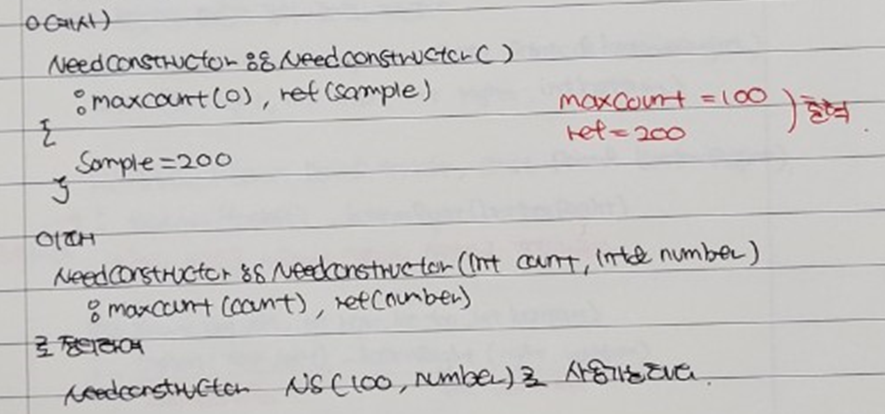 ○(예시)
NeedConstructor::NeedConstructor( )
:maxcount(0), ref(sample)
maxcount = 100
{
ref = 200
) 출력
Sample=200
}
이때
NeedConstructor::NeedConstructor(int count, int& number)
:maxcount(count), ref(number)
로 정의하여
NeedConstructor NS(100, number)로 사용가능하다.